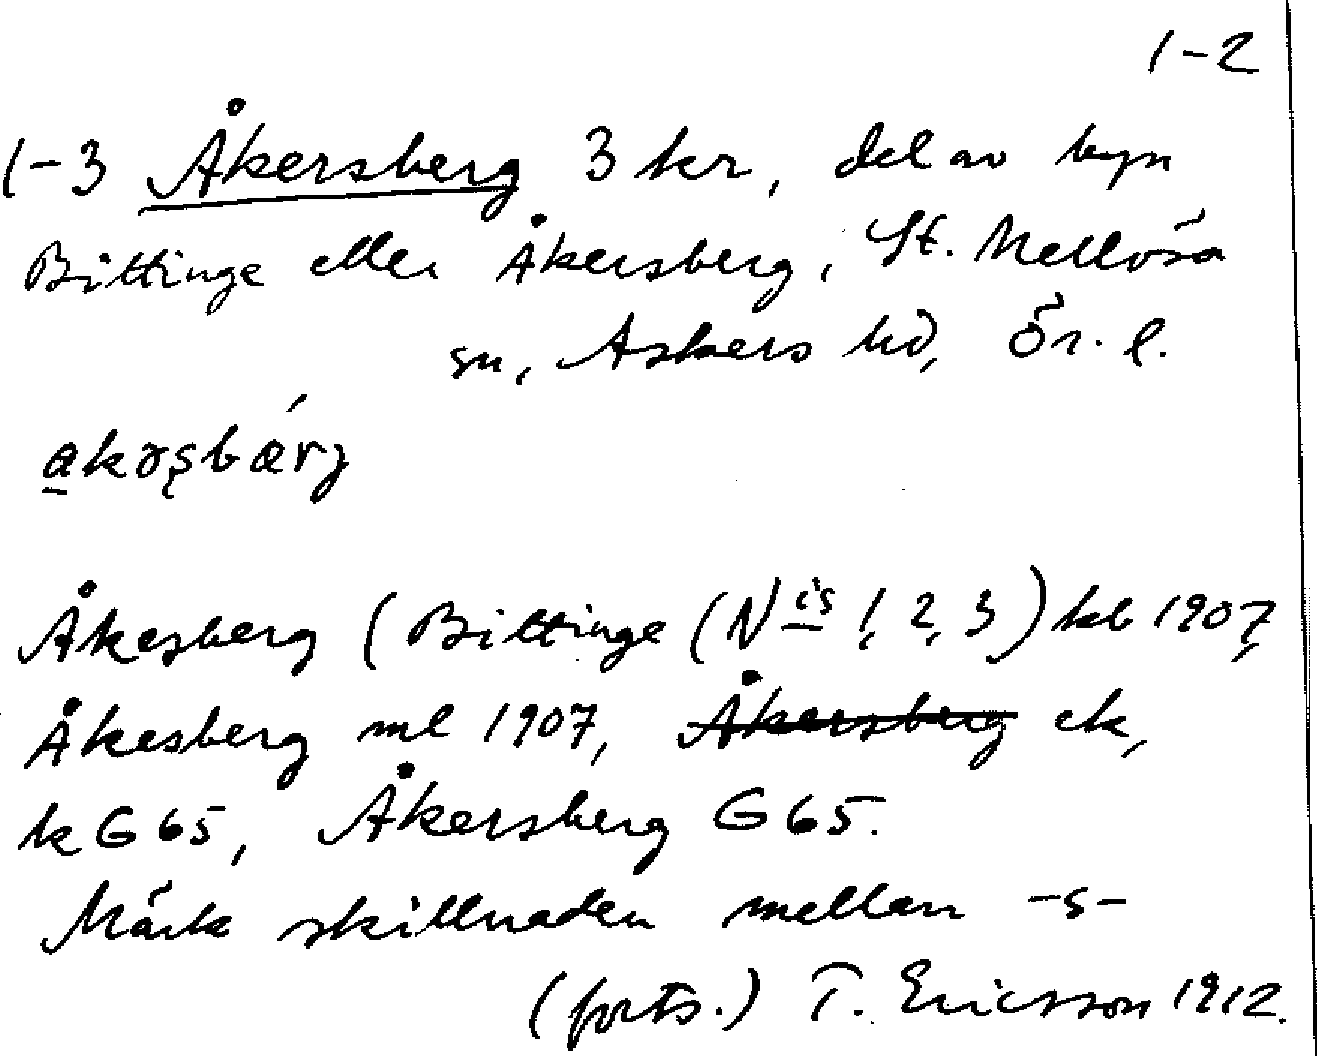 1-2
1-3 Åkersberg 3 kr, del av byn
Bittinge eller Åkersberg, St. Mellösa
sn, Askers hd, Ör. l.
akərsbærj
Åkesberg (Bittinge (N is 1, 2, 3) kb 1907,
Åkesberg ml 1907, Åkersberg ek,
k G 65, Åkersberg G 65.
Märk skillnaden mellan -s-
(forts.) T. Ericsson 1912.